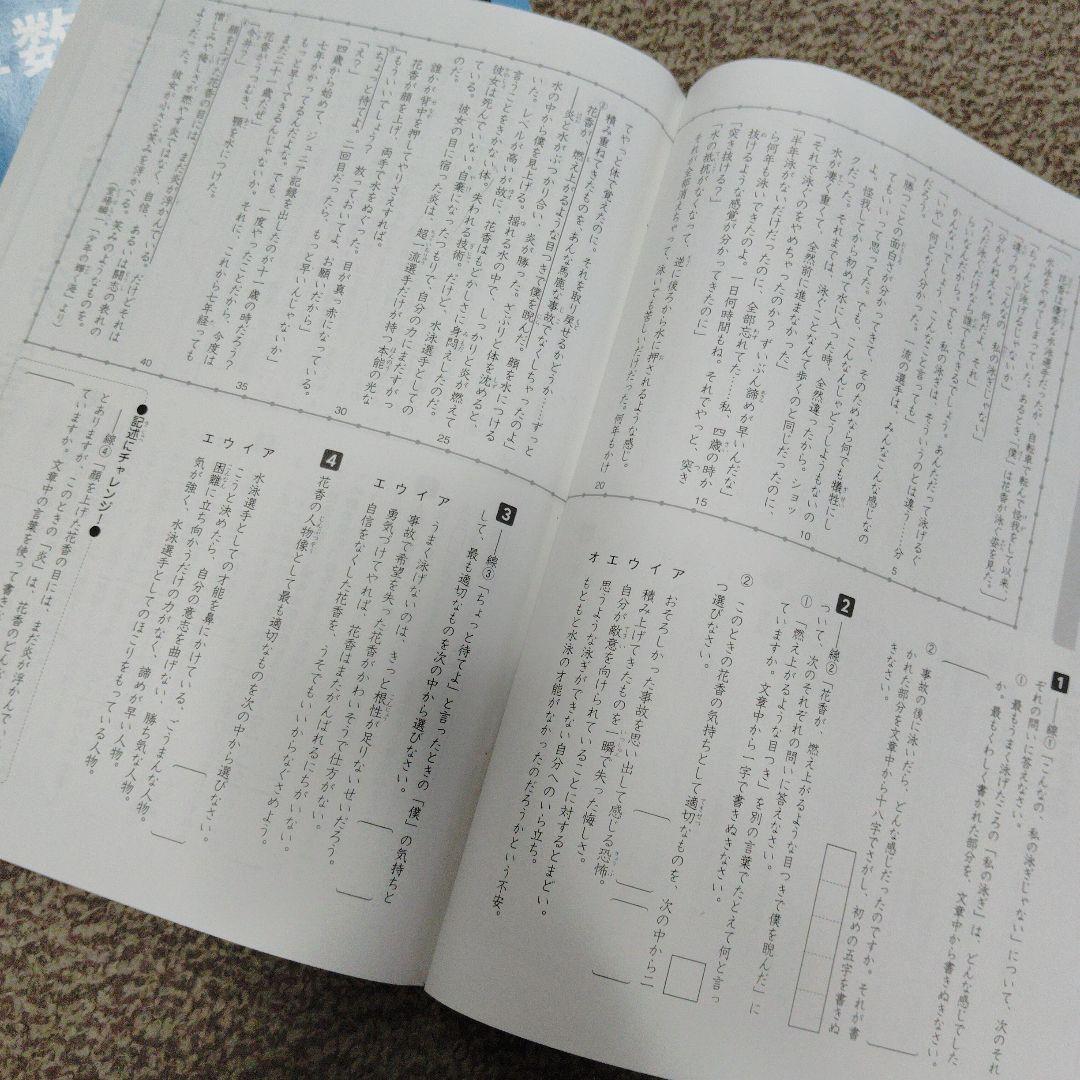 花香は優秀な水泳選手だったが、自転車で転んで怪我をして以来、
水泳をやめてしまっていた。あるとき「僕」は花香が泳ぐ姿を見た。
「ちゃんと泳げるじゃないか」
「違うのっ。こんなの、私の泳ぎじゃない」
「ただ泳ぐだけなら、誰でもできるでしょう。あんただって泳げるぐ
らいなんだから。でも、私の泳ぎは、そういうのとは違う……分
かんないでしょう、こんなこと言っても」
「いや、何となく分かった。一流の選手は、みんなこんな感じなの
だろう。
「勝つことの面白さが分かってきて、そのためなら何でも犠牲にし
てもいいって思ってた。でも、こんなになんじゃどうしようもないの
よ、怪我してから初めて水に入った時、全然違ったから。ショッ
クだった。それまでは、泳ぐことなんて歩くのと同じだったのに、
水が凄く重くて、全然前に進まなかった」
「それで泳ぐのをやめちゃったのか？ずいぶん諦めが早いんだな」
「半年泳がないだけだったのに、全部忘れてた……私、四歳の時か
ら何年も泳いできたのよ。一日何時間もね。それでやっと、突き
抜けるような感覚が分かってきたのに」
「突き抜ける？」
「水の抵抗がなくなって、逆に後ろから水に押されるような感じ。
それが全部消えちゃって、泳いでも苦しいだけだった。何年もかけ
5
10
15
20
てやっと体で覚えたのに。それを取り戻せるかどうか……ずっと
積み重ねてきたものを、あんな馬鹿な事故でなくしちゃったのよ」
②花香が、燃え上がるような目つきで僕を睨んだ。顔を水につける
――炎と水がぶつかり合い、炎が勝った。ざぶりと体を沈めると、
水の中から僕を見上げる。揺れる水の中で、しっかりと炎が燃えて
いた。レベルが高いが故に、花香はもどかしさに身悶えしている。
言うことをきかない体。失われる技術。だけど、水泳選手としての
彼女は死んでいない。自棄になったつもりで、自分の力にまだすがっ
ている。彼女の目に宿った炎は、超一流選手だけが持つ本能の光な
のだ。
誰かが背中を押してやりさえすれば。
花香が顔を上げ、両手で水をぬぐった。目が真っ赤になっている。
「もういいでしょう？放っておいてよ、お願いだから」
③「ちょっと待てよ。二回目だったら、もっと早いんじゃないか」
「え？」
「四歳から始めて、ジュニア記録を出したのが十一歳の時だろう？
七年かかってるんだよな。でも、一度やったことだから、今度は
もっと早くできるんじゃないか。それに、これから七年経っても
まだ二十一歳だぜ」
花香がうつむき、顎を水につけた。
④顔を上げた花香の目には、まだ炎が浮かんでいる。だけどそれは
憎しみや悔しさが燃やす炎ではなく、自信、あるいは闘志の表れの
ようだった。彼女が小さな笑みを浮かべる。笑みのようなものを。
(堂場瞬一「少年の輝く海」より)
25
30
35
40
1 ――線①「こんなの、私の泳ぎじゃない」について、次のそれ
ぞれの問いに答えなさい。
① 最もうまく泳げたころの「私の泳ぎ」は、どんな感じでした
か。最もくわしく書かれた部分を、文章中から書きぬきなさい。
② 事故の後に泳いだら、どんな感じだったのですか。それが書
かれた部分を文章中から十八字でさがし、初めの五字を書きぬ
きなさい。
2 ――線②「花香が、燃え上がるような目つきで僕を睨んだ」に
ついて、次のそれぞれの問いに答えなさい。
① 「燃え上がるような目つき」を別の言葉でたとえて何と言っ
ていますか。文章中から一字で書きぬきなさい。
② このときの花香の気持ちとして適切なものを、次の中から二
つ選びなさい。
ア おそろしかった事故を思い出して感じる恐怖。
イ 積み上げてきたものを一瞬で失った悔しさ。
ウ 自分が敵意を向けられていることに対するとまどい。
エ 思うような泳ぎができない自分へのいら立ち。
オ もともと水泳の才能がなかったのだろうかという不安。
3 ――線③「ちょっと待てよ」と言ったときの「僕」の気持ちと
して、最も適切なものを次の中から選びなさい。
ア うまく泳げないのは、きっと根性が足りないせいだろう。
イ 事故で希望を失った花香がかわいそうで仕方がない。
ウ 勇気づけてやれば、花香はまたがんばれるにちがいない。
エ 自信をなくした花香を、うそでもいいからなぐさめよう。
4 花香の人物像として最も適切なものを次の中から選びなさい。
ア 水泳選手としての才能を鼻にかけている、ごうまんな人物。
イ こうと決めたら、自分の意志を曲げない、勝ち気な人物。
ウ 困難に立ち向かうだけの力がなく、諦めが早い人物。
エ 気が強く、水泳選手としてのほこりをもっている人物。
●記述にチャレンジ●
――線④「顔を上げた花香の目には、まだ炎が浮かんでい
とありますが、このときの「炎」は、花香のどんな
ていますか。文章中の言葉を使って書き
数